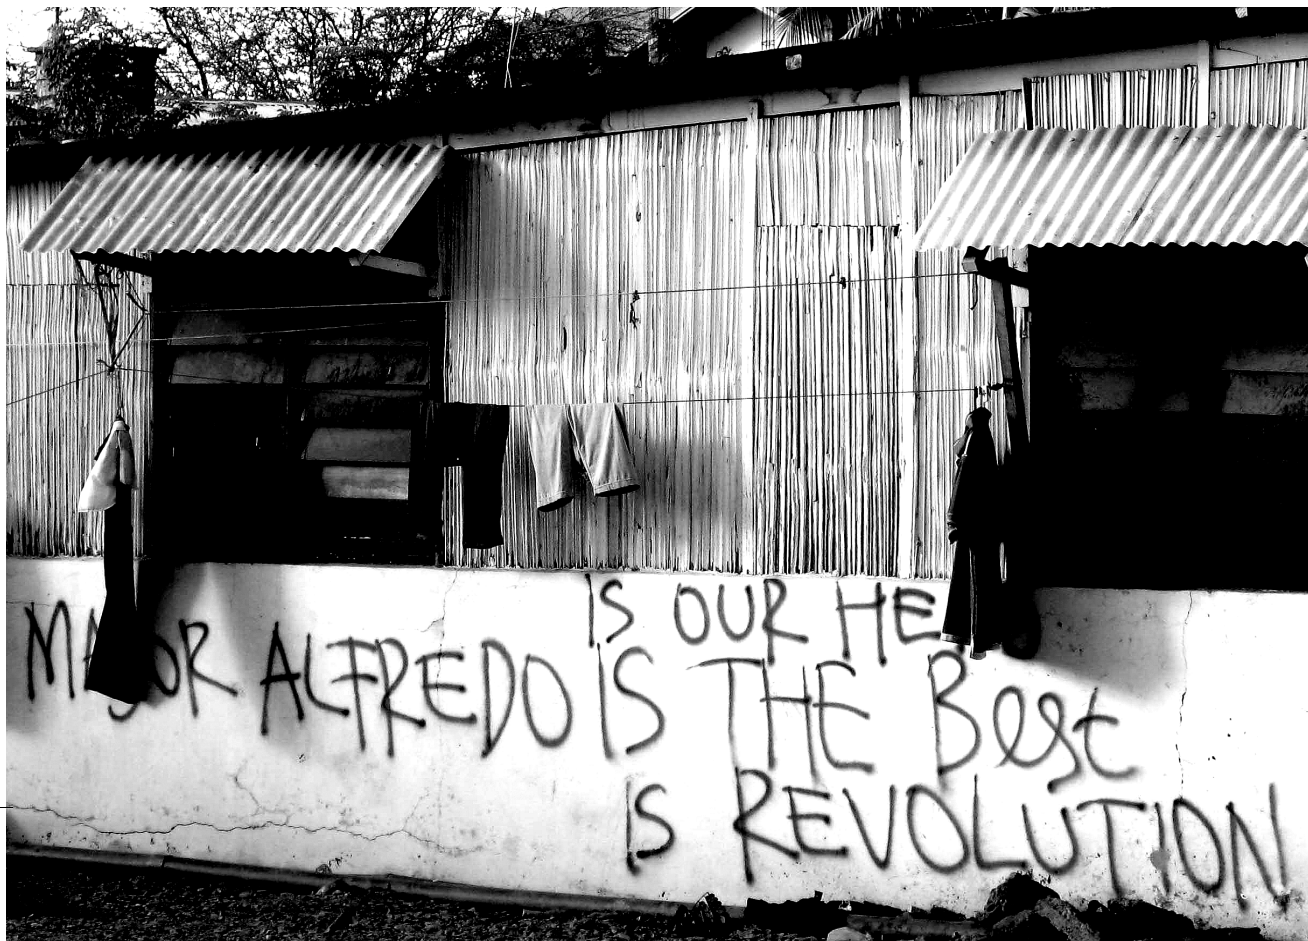 IS OUR HERO
MAJOR ALFREDO IS THE Best
IS REVOLUTION